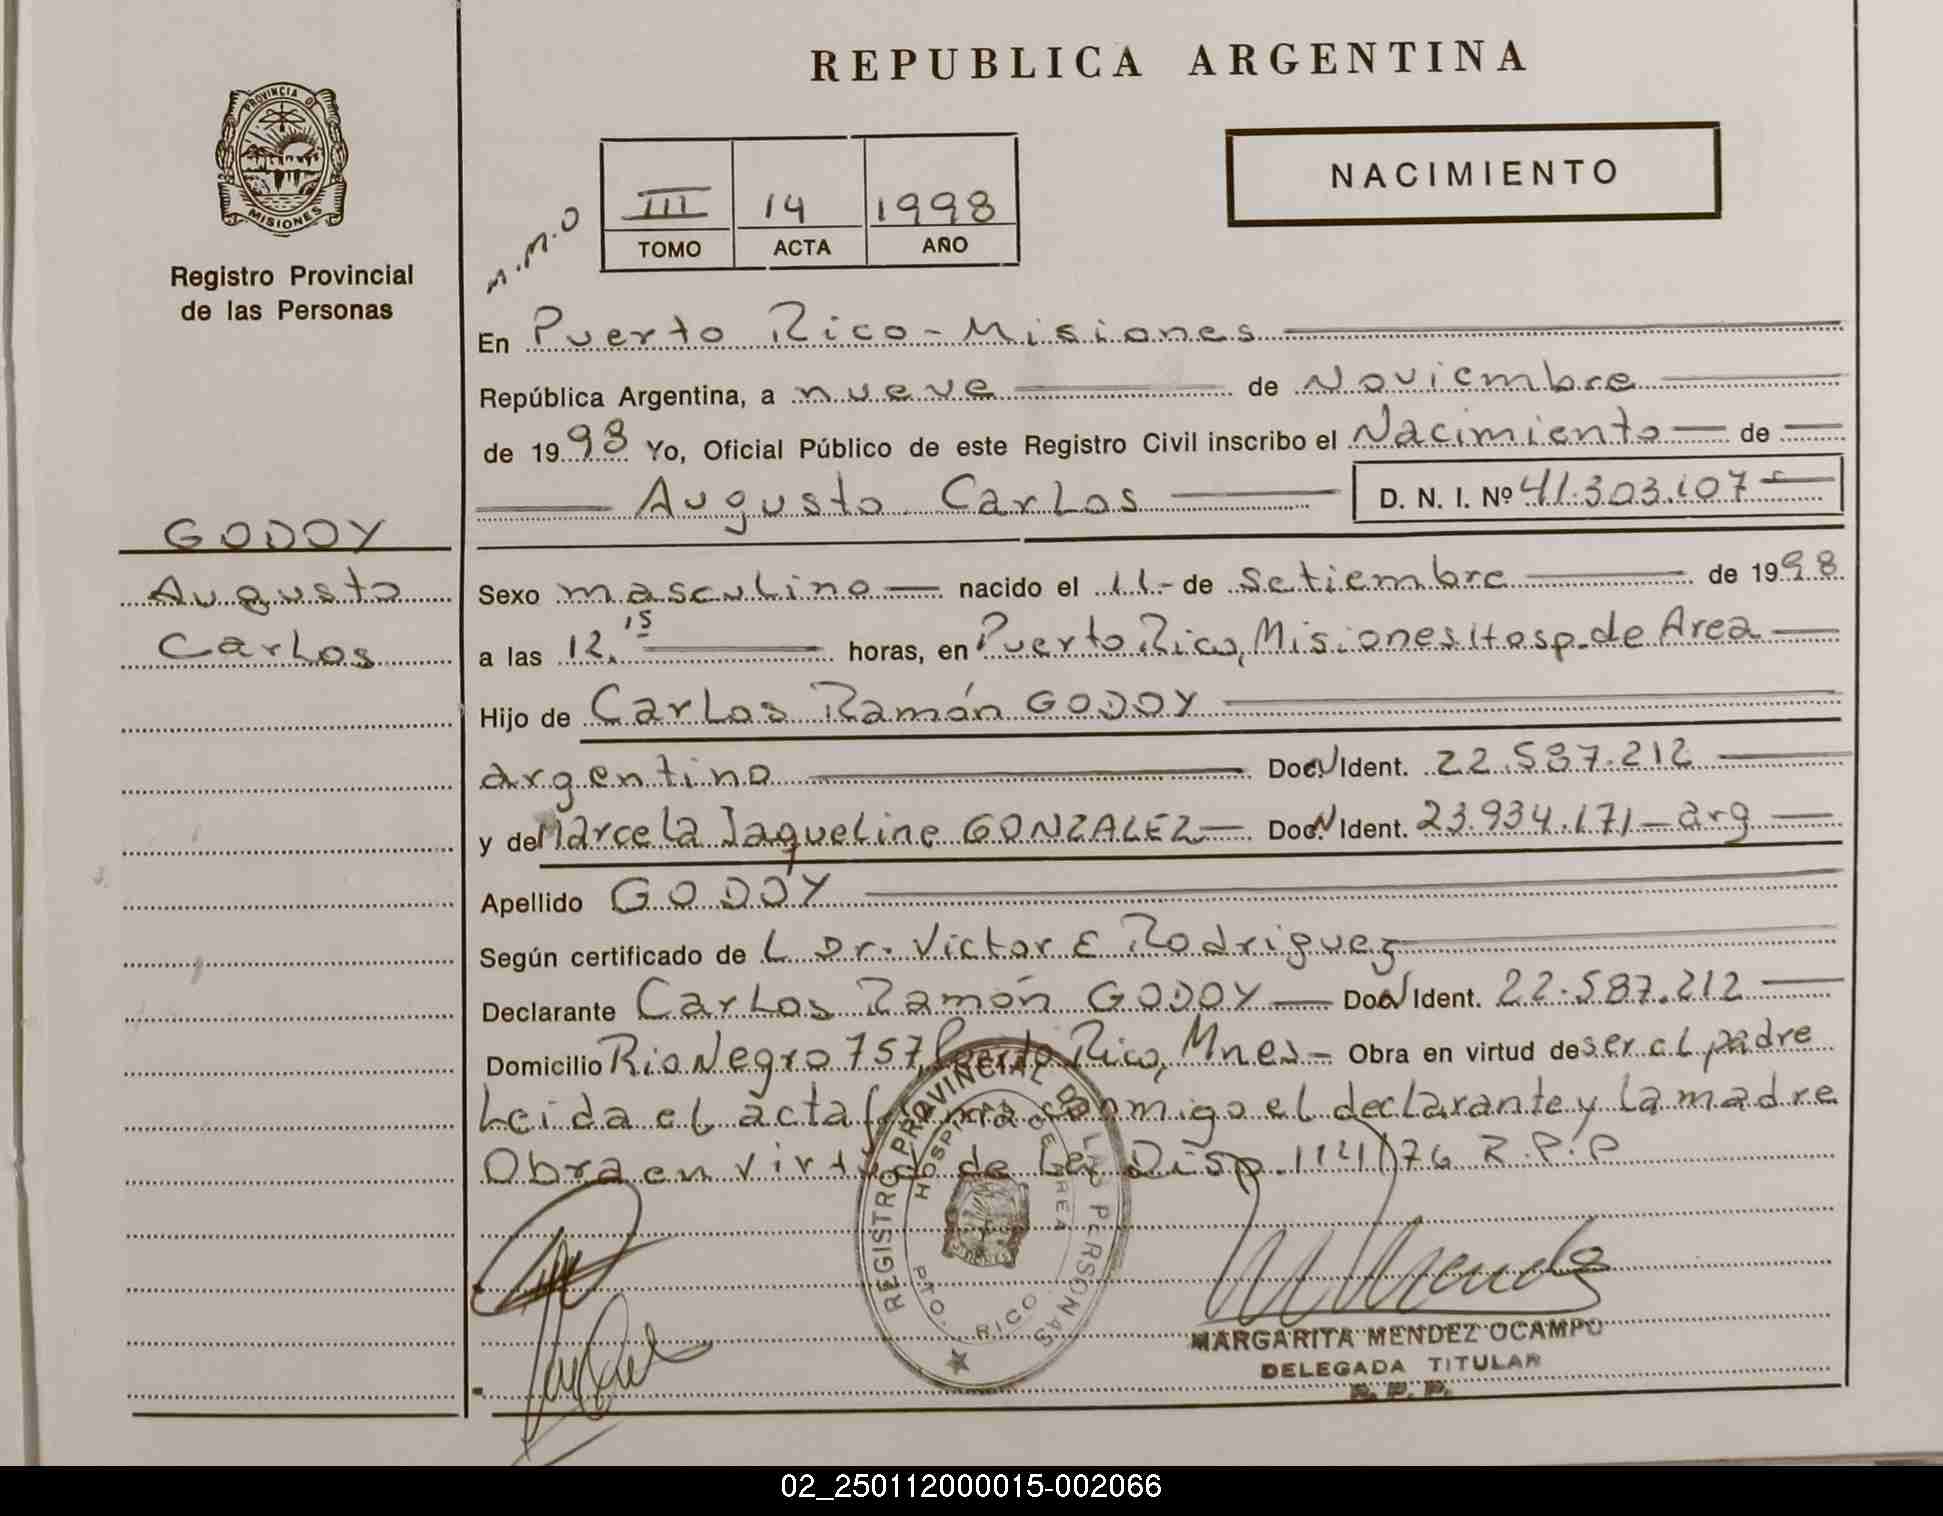 REPUBLICA ARGENTINA
PROVINCIA DE
MISIONES
Registro Provincial
de las Personas
NACIMIENTO
III 14 1998
TOMO ACTA AÑO
M.M.O
En Puerto Rico - Misiones
República Argentina, a nueve de Noviembre
de 1998 Yo, Oficial Público de este Registro Civil inscribo el Nacimiento de
Augusto Carlos D. N. I. Nº 41.303.107
GODOY
Augusto
Carlos
Sexo masculino nacido el 11 - de Setiembre de 1998
a las 12.15 horas, en Puerto Rico, Misiones Hosp. de Area
Hijo de Carlos Ramón GODOY
argentino Doc.N Ident. 22.587.212
y de Marcela Jaqueline GONZALEZ Doc.N Ident. 23.934.171 - arg
Apellido GODOY
Según certificado de L Dr. Victor E Rodriguez
Declarante Carlos Ramón GODOY Doc.N Ident. 22.587.212
Domicilio Rio Negro 757, Puerto Rico, Mnes - Obra en virtud de ser el padre
Leida el acta firma conmigo el declarante y la madre
Obra en virtud de Disp. 1141/76 R.P.P
REGISTRO PROVINCIAL DE LAS PERSONAS
HOSPITAL DE AREA
PTO. RICO
MARGARITA MENDEZ OCAMPO
DELEGADA TITULAR
R. P. P.
02_250112000015-002066